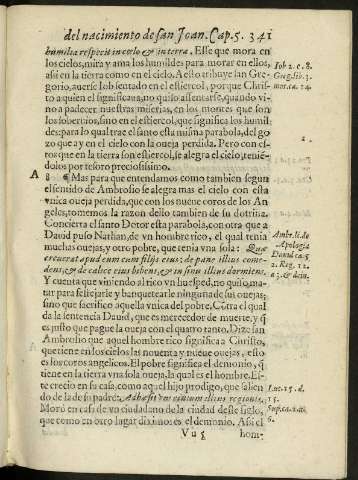 del nacimiento de san Joan. Cap. 5. 341
humilia respecit in cœlo & in terra. Esse que mora en
los cielos, mira y ama los humildes para morar en ellos,
assi en la tierra como en el cielo. A esto tribuye san Gre-
gorio, auerse Iob sentado en el estiercol, porque Chris-
to a quien el significaua, no quiso assentarse, quando vi-
no a padecer nuestras miserias, en los montes que son
los soberuios, sino en el estiercol, que significa los humil-
des: para lo qual trae el santo esta misma parabola, del go
zo que ay en el cielo con la oueja perdida. Pero con es-
tos que en la tierra son estiercol, se alegra el cielo, tenié-
dolos por tesoro preciosissimo.
Iob 2. c. 8.
Greg. lib. 3.
mor. ca. 24.
2.
A
8 ¶ Mas para que entendamos como tambien segun
el sentido de Ambrosio se alegra mas el cielo con esta
vnica oueja perdida, que con los nueue coros de los An
geles, tomemos la razon dello tambien de su dotrina.
Concierta el santo Dotor esta parabola, con otra que a
Dauid puso Nathan, de vn hombre rico, el qual tenia
muchas ouejas, y otro pobre, que tenia vna sola: Quæ
creuerat apud eum cum filijs eius: de pane illius come-
dens, & de calice eius bibens, & in sinu illius dormiens.
Y cuenta que viniendo al rico vn huesped, no quiso, ma-
tar para festejarle y banquetearle ninguna de sus ouejas;
sino que sacrifico aquella vnica del pobre. Cótra el qual
da la sentencia Dauid, que es merecedor de muerte, y q̃
es justo que pague la oueja con el quatro tanto. Dize san
Ambrosio que aquel hombre rico significa a Christo,
que tiene en los cielos las nouenta y nueue ouejas, esto
es los coros angelicos. El pobre significa el demonio, q̃
tiene en la tierra vna sola oueja, la qual es el hombre. Es-
te crecio en su casa, como aquel hijo prodigo, que salien
do de la de su padre: Adhæsit vni ciuium illius regionis.
Morò en casa de vn ciudadano de la ciudad deste siglo,
que como en otro lugar diximos es el demonio. Assi el
Ambr. li. de
Apologia
Dauid ca. 5.
2. Reg. 12.
a. 3. & dein.
Luc. 15. d.
15.
6.
hom-